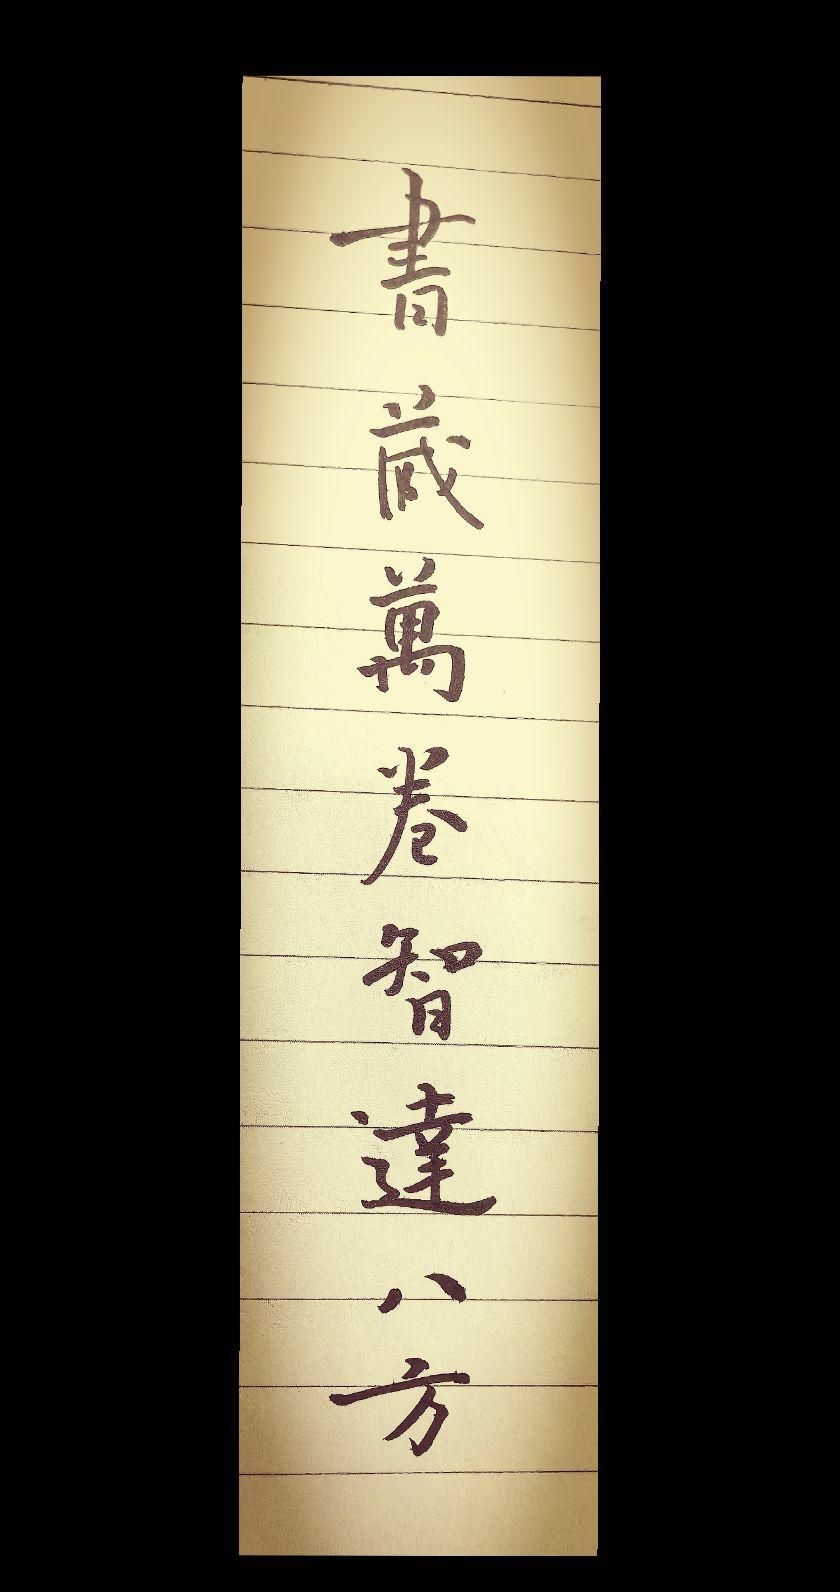 書蔵萬卷智達八方